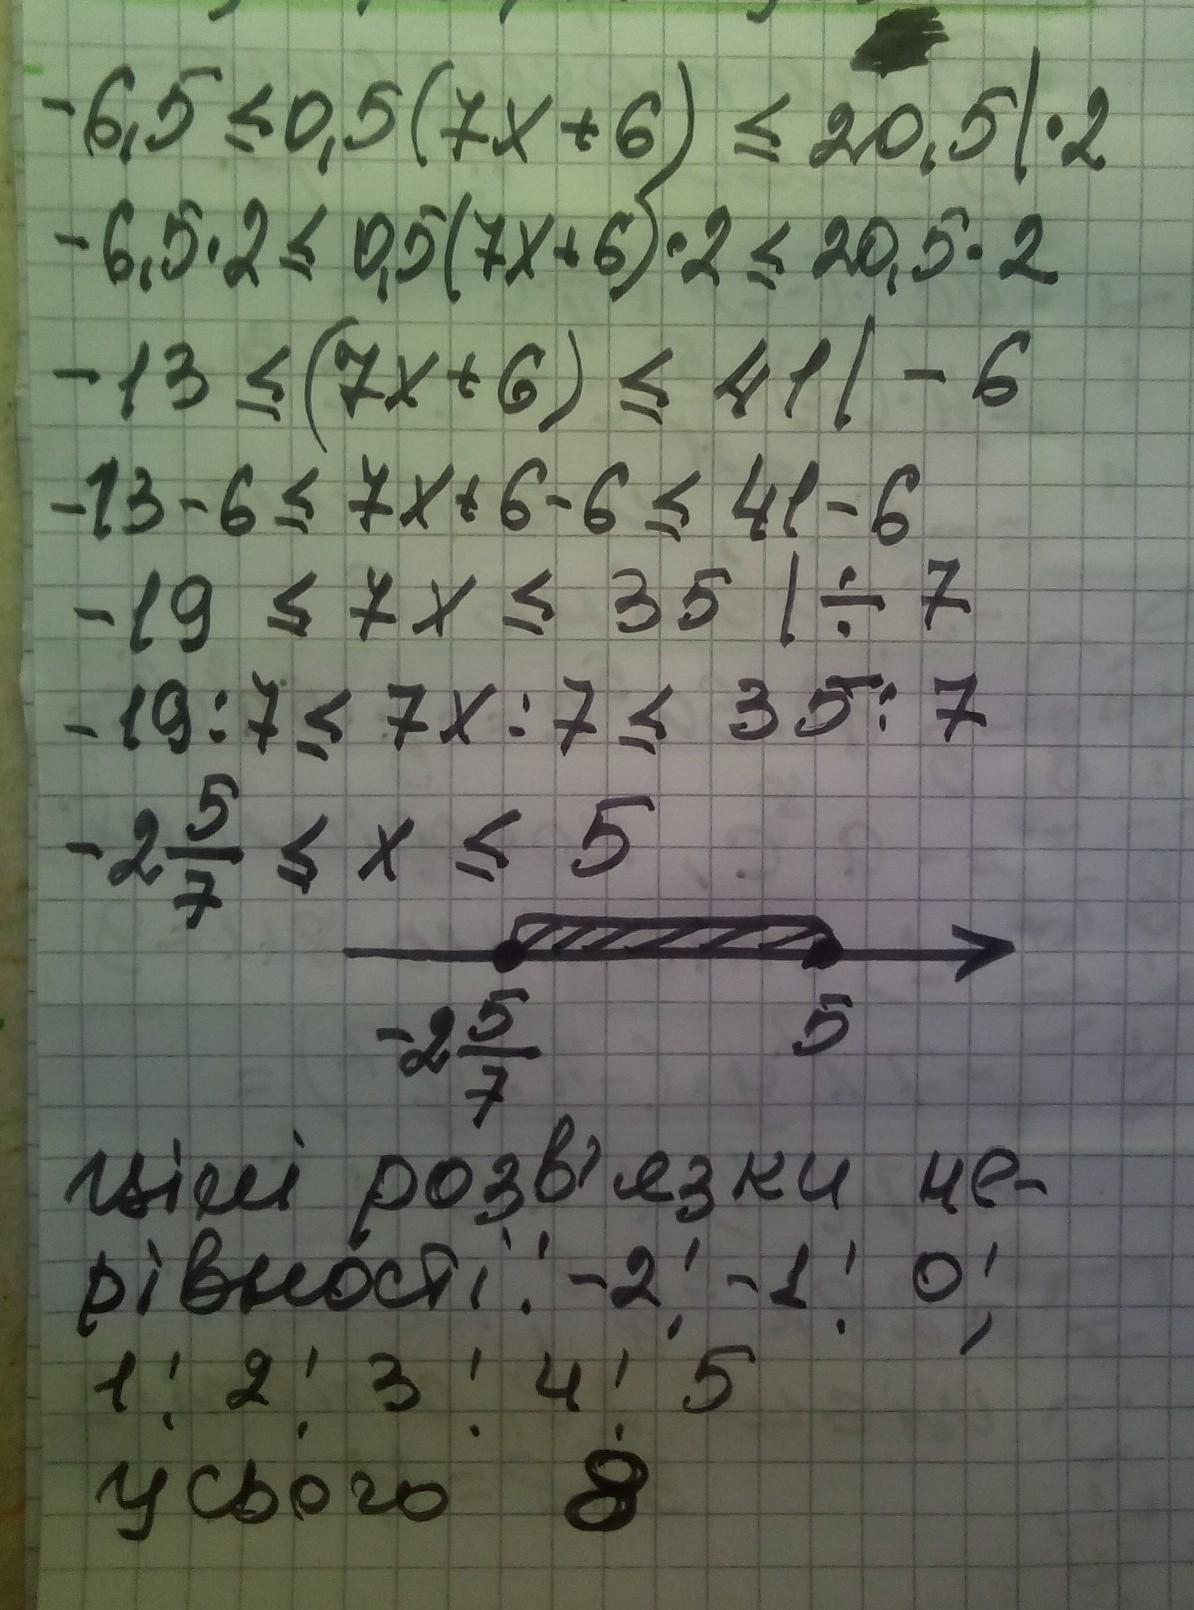 -6,5 ≤ 0,5(7x+6) ≤ 20,5|·2
-6,5·2 ≤ 0,5(7x+6)·2 ≤ 20,5·2
-13 ≤ (7x+6) ≤ 41| -6
-13-6 ≤ 7x+6-6 ≤ 41-6
-19 ≤ 7x ≤ 35 |÷7
-19:7 ≤ 7x:7 ≤ 35:7
-2 5/7 ≤ x ≤ 5
-2 5/7 5
цілі розв'язки не-
рівності: -2; -1; 0;
1; 2; 3; 4; 5
усього 8